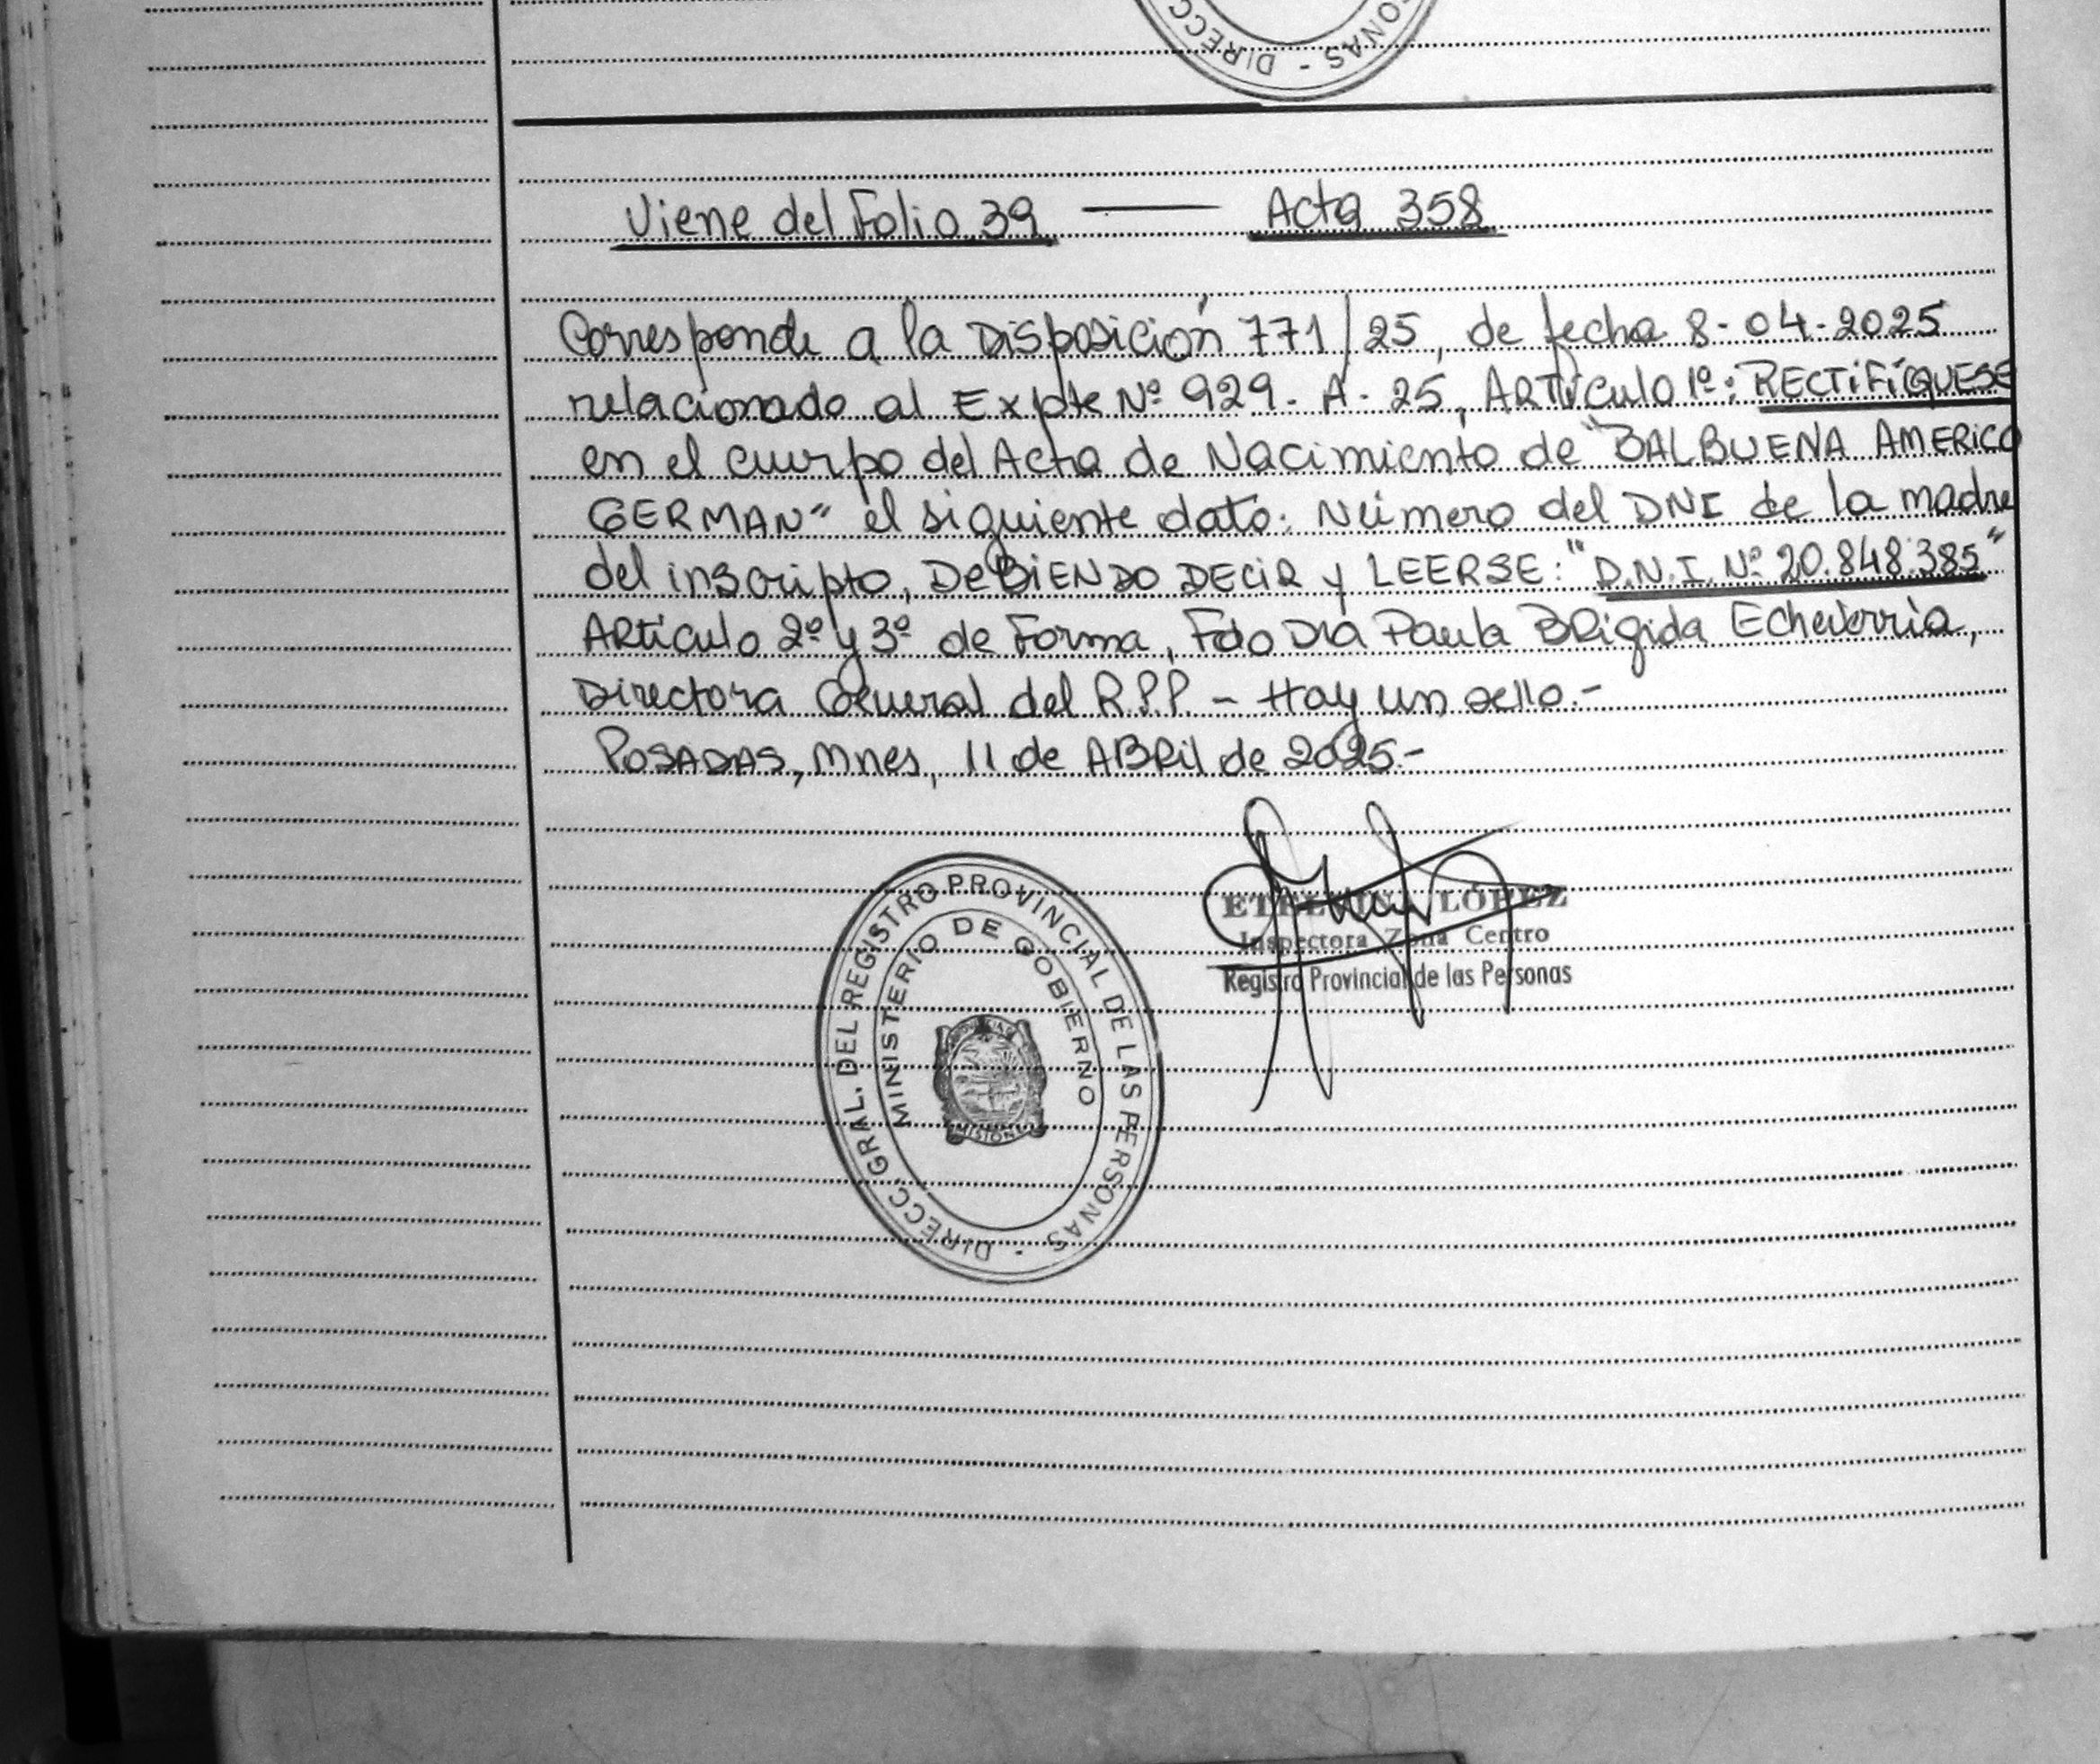 DIRECC
ONAS -
Viene del Folio 39 — Acta 358
Corresponde a la Disposición 771/25, de fecha 8-04-2025
relacionado al Expte Nº 929-A-25, ARTículo 1º: RECTIFÍQUESE
en el cuerpo del Acta de Nacimiento de "BALBUENA AMERICO
GERMAN" el siguiente dato: Número del DNI de la madre
del inscripto, DEBIENDO DECIR y LEERSE: "D.N.I. Nº 20.848.385"
ARtículo 2º y 3º de Forma, Fdo Dra Paula BRigida Echeverria,
Directora General del R.P.P. - Hay un sello.-
POSADAS, Mnes, 11 de ABRil de 2025.-
LÓPEZ
Inspectora Zona Centro
Registro Provincial de las Personas
DIRECC. GRAL. DEL REGISTRO PROVINCIAL DE LAS PERSONAS -
MINISTERIO DE GOBIERNO
MISIONES